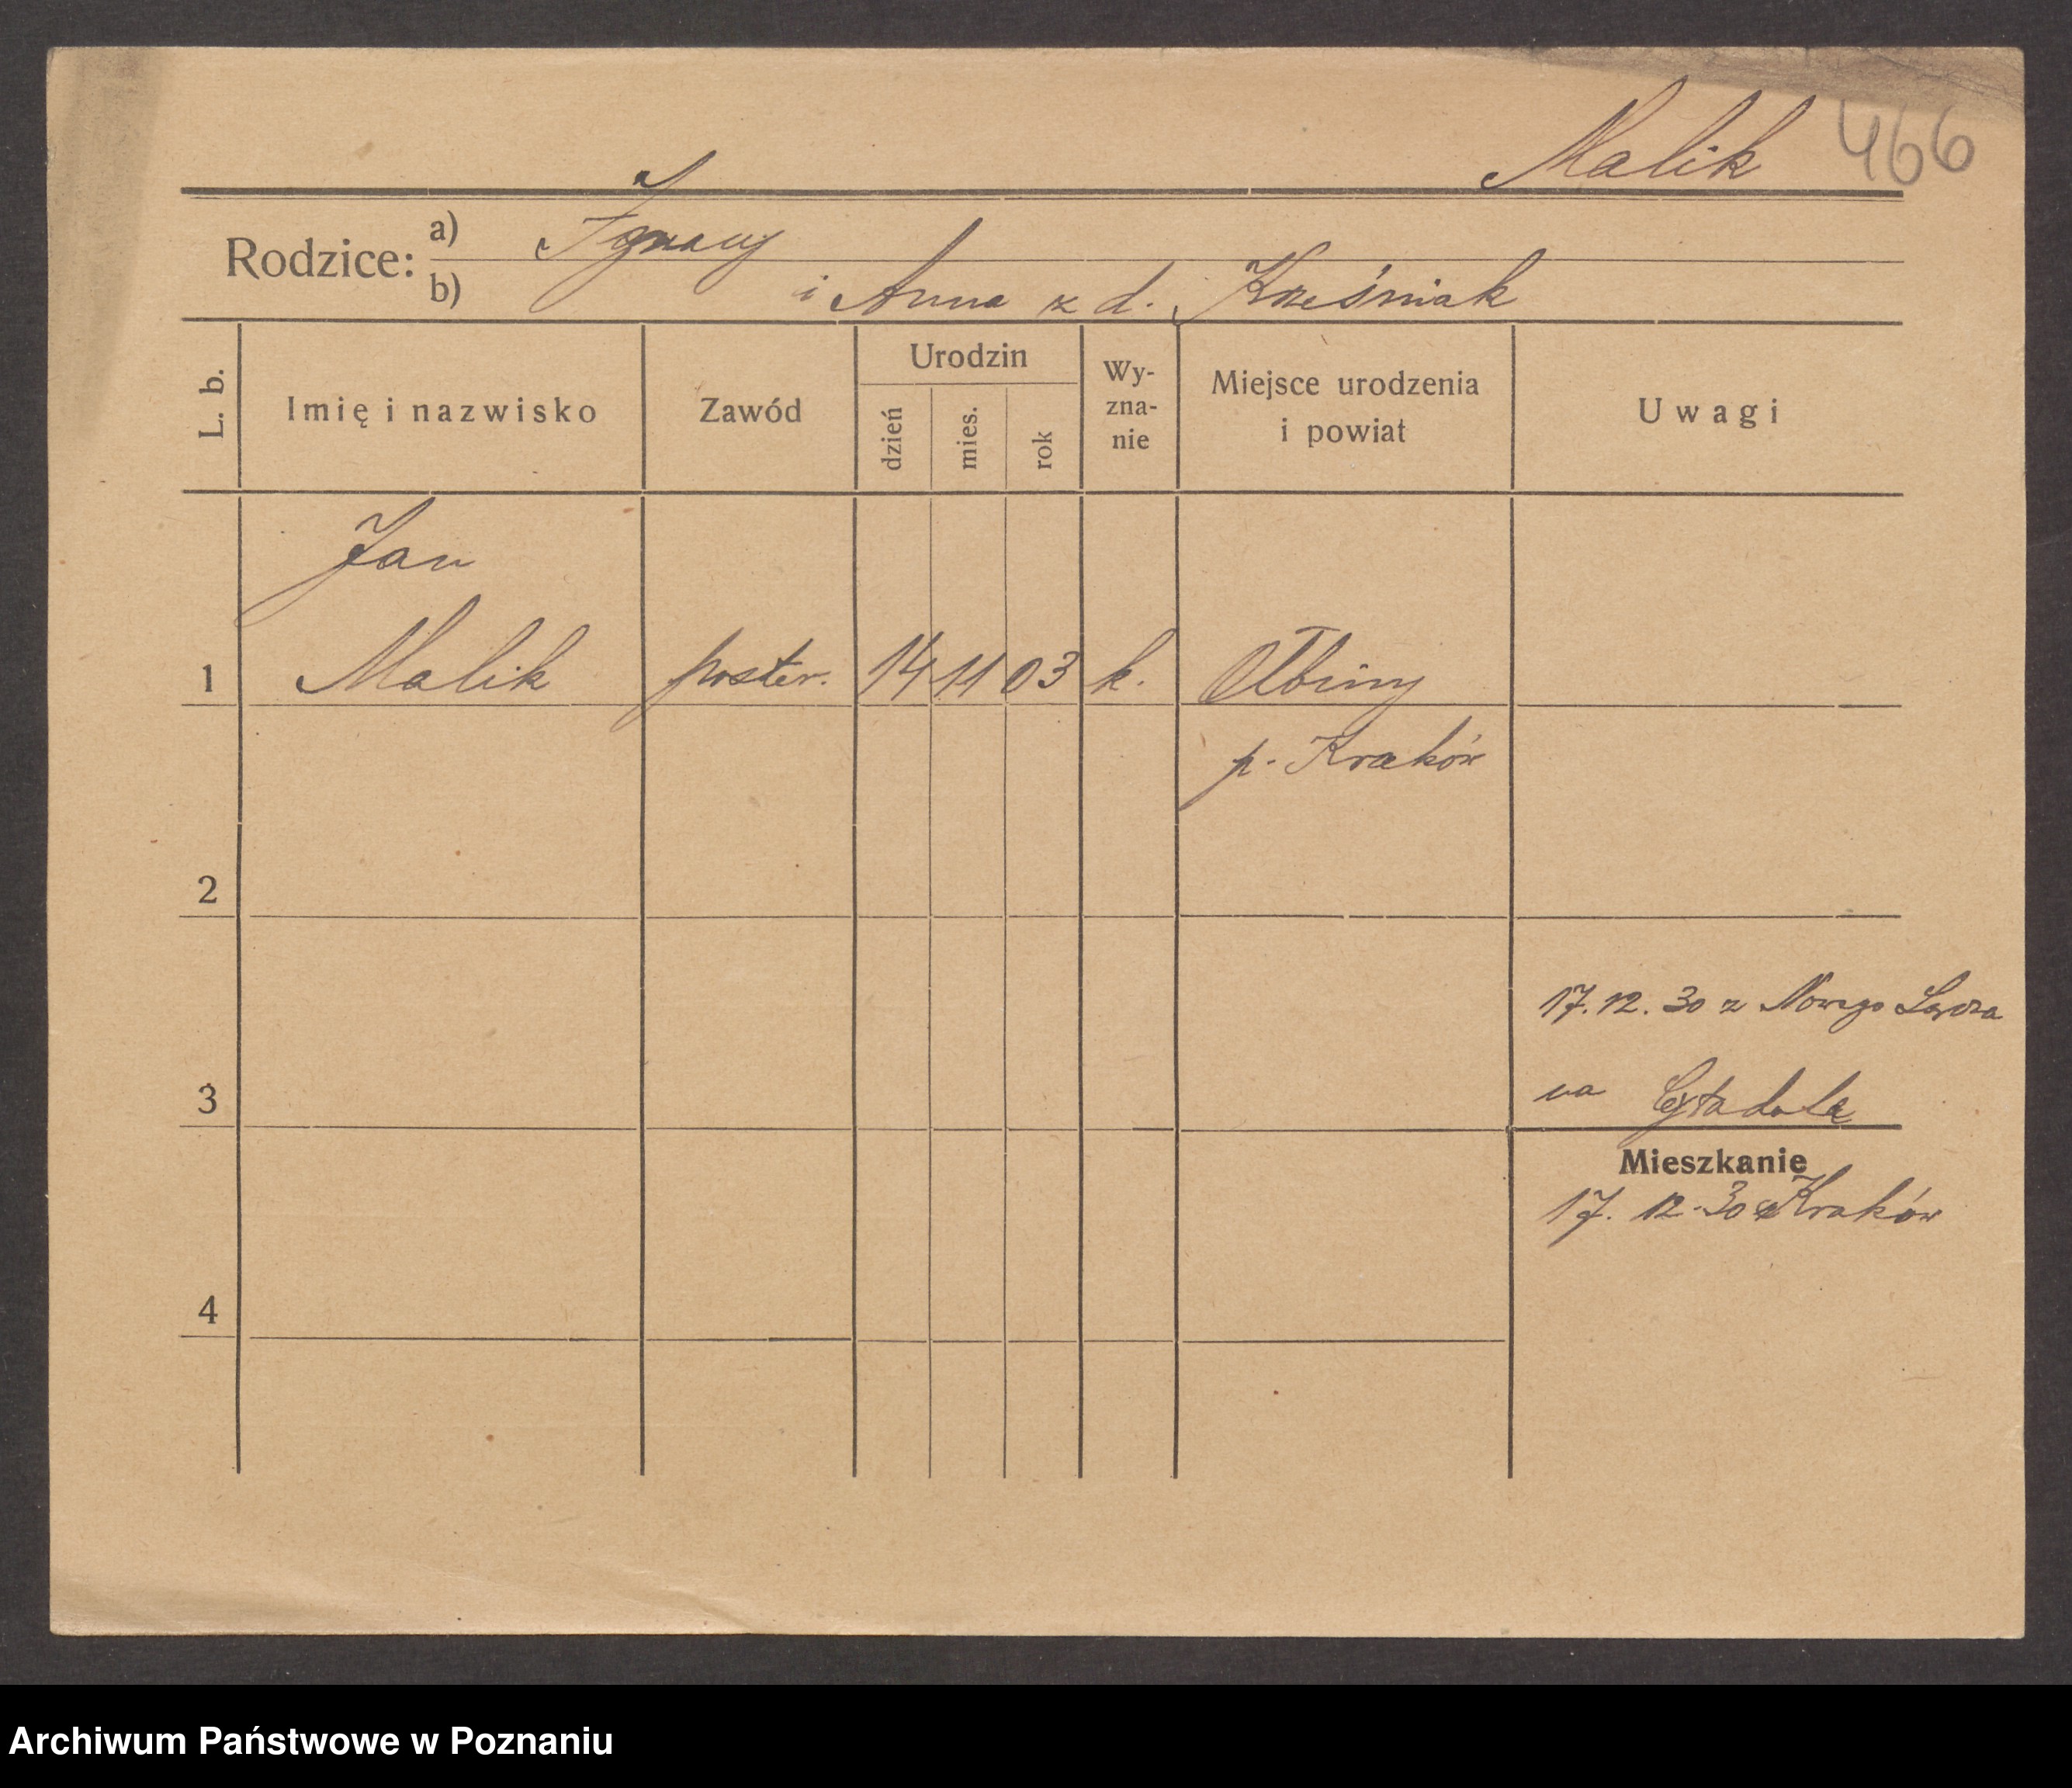 Malik 466
Rodzice: a) Ignacy
b) i Anna z d. Krześniak
L. b. Imię i nazwisko Zawód Urodzin dzień mies. rok Wy-zna-nie Miejsce urodzenia i powiat Uwagi
Jan
1 Malik poster. 14 11 03 k.
p. Kraków
2
17.12.30 z Nowego Sącza
3 na Cytadelę
Mieszkanie
17. 12. 30 Kraków
4
Archiwum Państwowe w Poznaniu